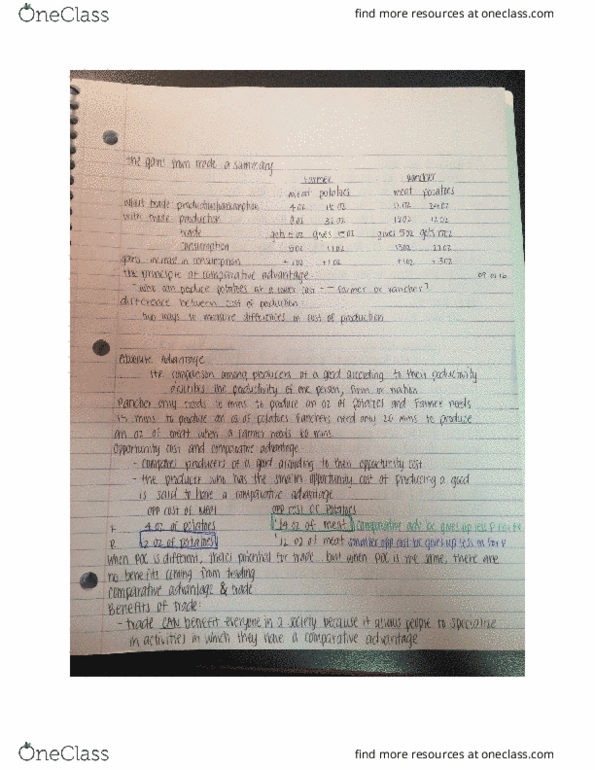 OneClass
find more resources at oneclass.com
the gains from trade a summary
farmer rancher
meat potatoes meat potatoes
without trade production/consumption 4 oz
with trade production
trade gets 5 oz gives 15 oz gives 5 oz gets
consumption 5 oz
gains increase in consumption +1 oz +1 oz +1 oz +3 oz
the principle of comparative advantage
- who can produce potatoes at a lower cost -- farmer or rancher?
difference between cost of production
two ways to measure differences in cost of production
Absolute Advantage
the comparison among producers of a good according to their productivity
describes the productivity of one person, firm or nation
Rancher only needs mins to produce an oz of potatoes and Farmer needs
15 mins to produce an oz of potatoes. Ranchers need only 20 mins to produce
an oz of meat when a farmer needs 60 mins.
Opportunity cost and comparative advantage
- compares producers of a good according to their opportunity cost
- the producer who has the smaller opportunity cost of producing a good
is said to have a comparative advantage
opp cost of meat opp cost of potatoes
F 4 oz of potatoes 1/4 oz of meat comparative adv bc gives up less
R 2 oz of potatoes 1/2 oz of meat smaller opp cost bc gives up less
when is different, potential for trade. but when is the same, there are
no benefits coming from trading
comparative advantage & trade
Benefits of trade:
- trade CAN benefit everyone in a society because it allows people to specialize
in activities in which they have a comparative advantage
OneClass
find more resources at oneclass.com